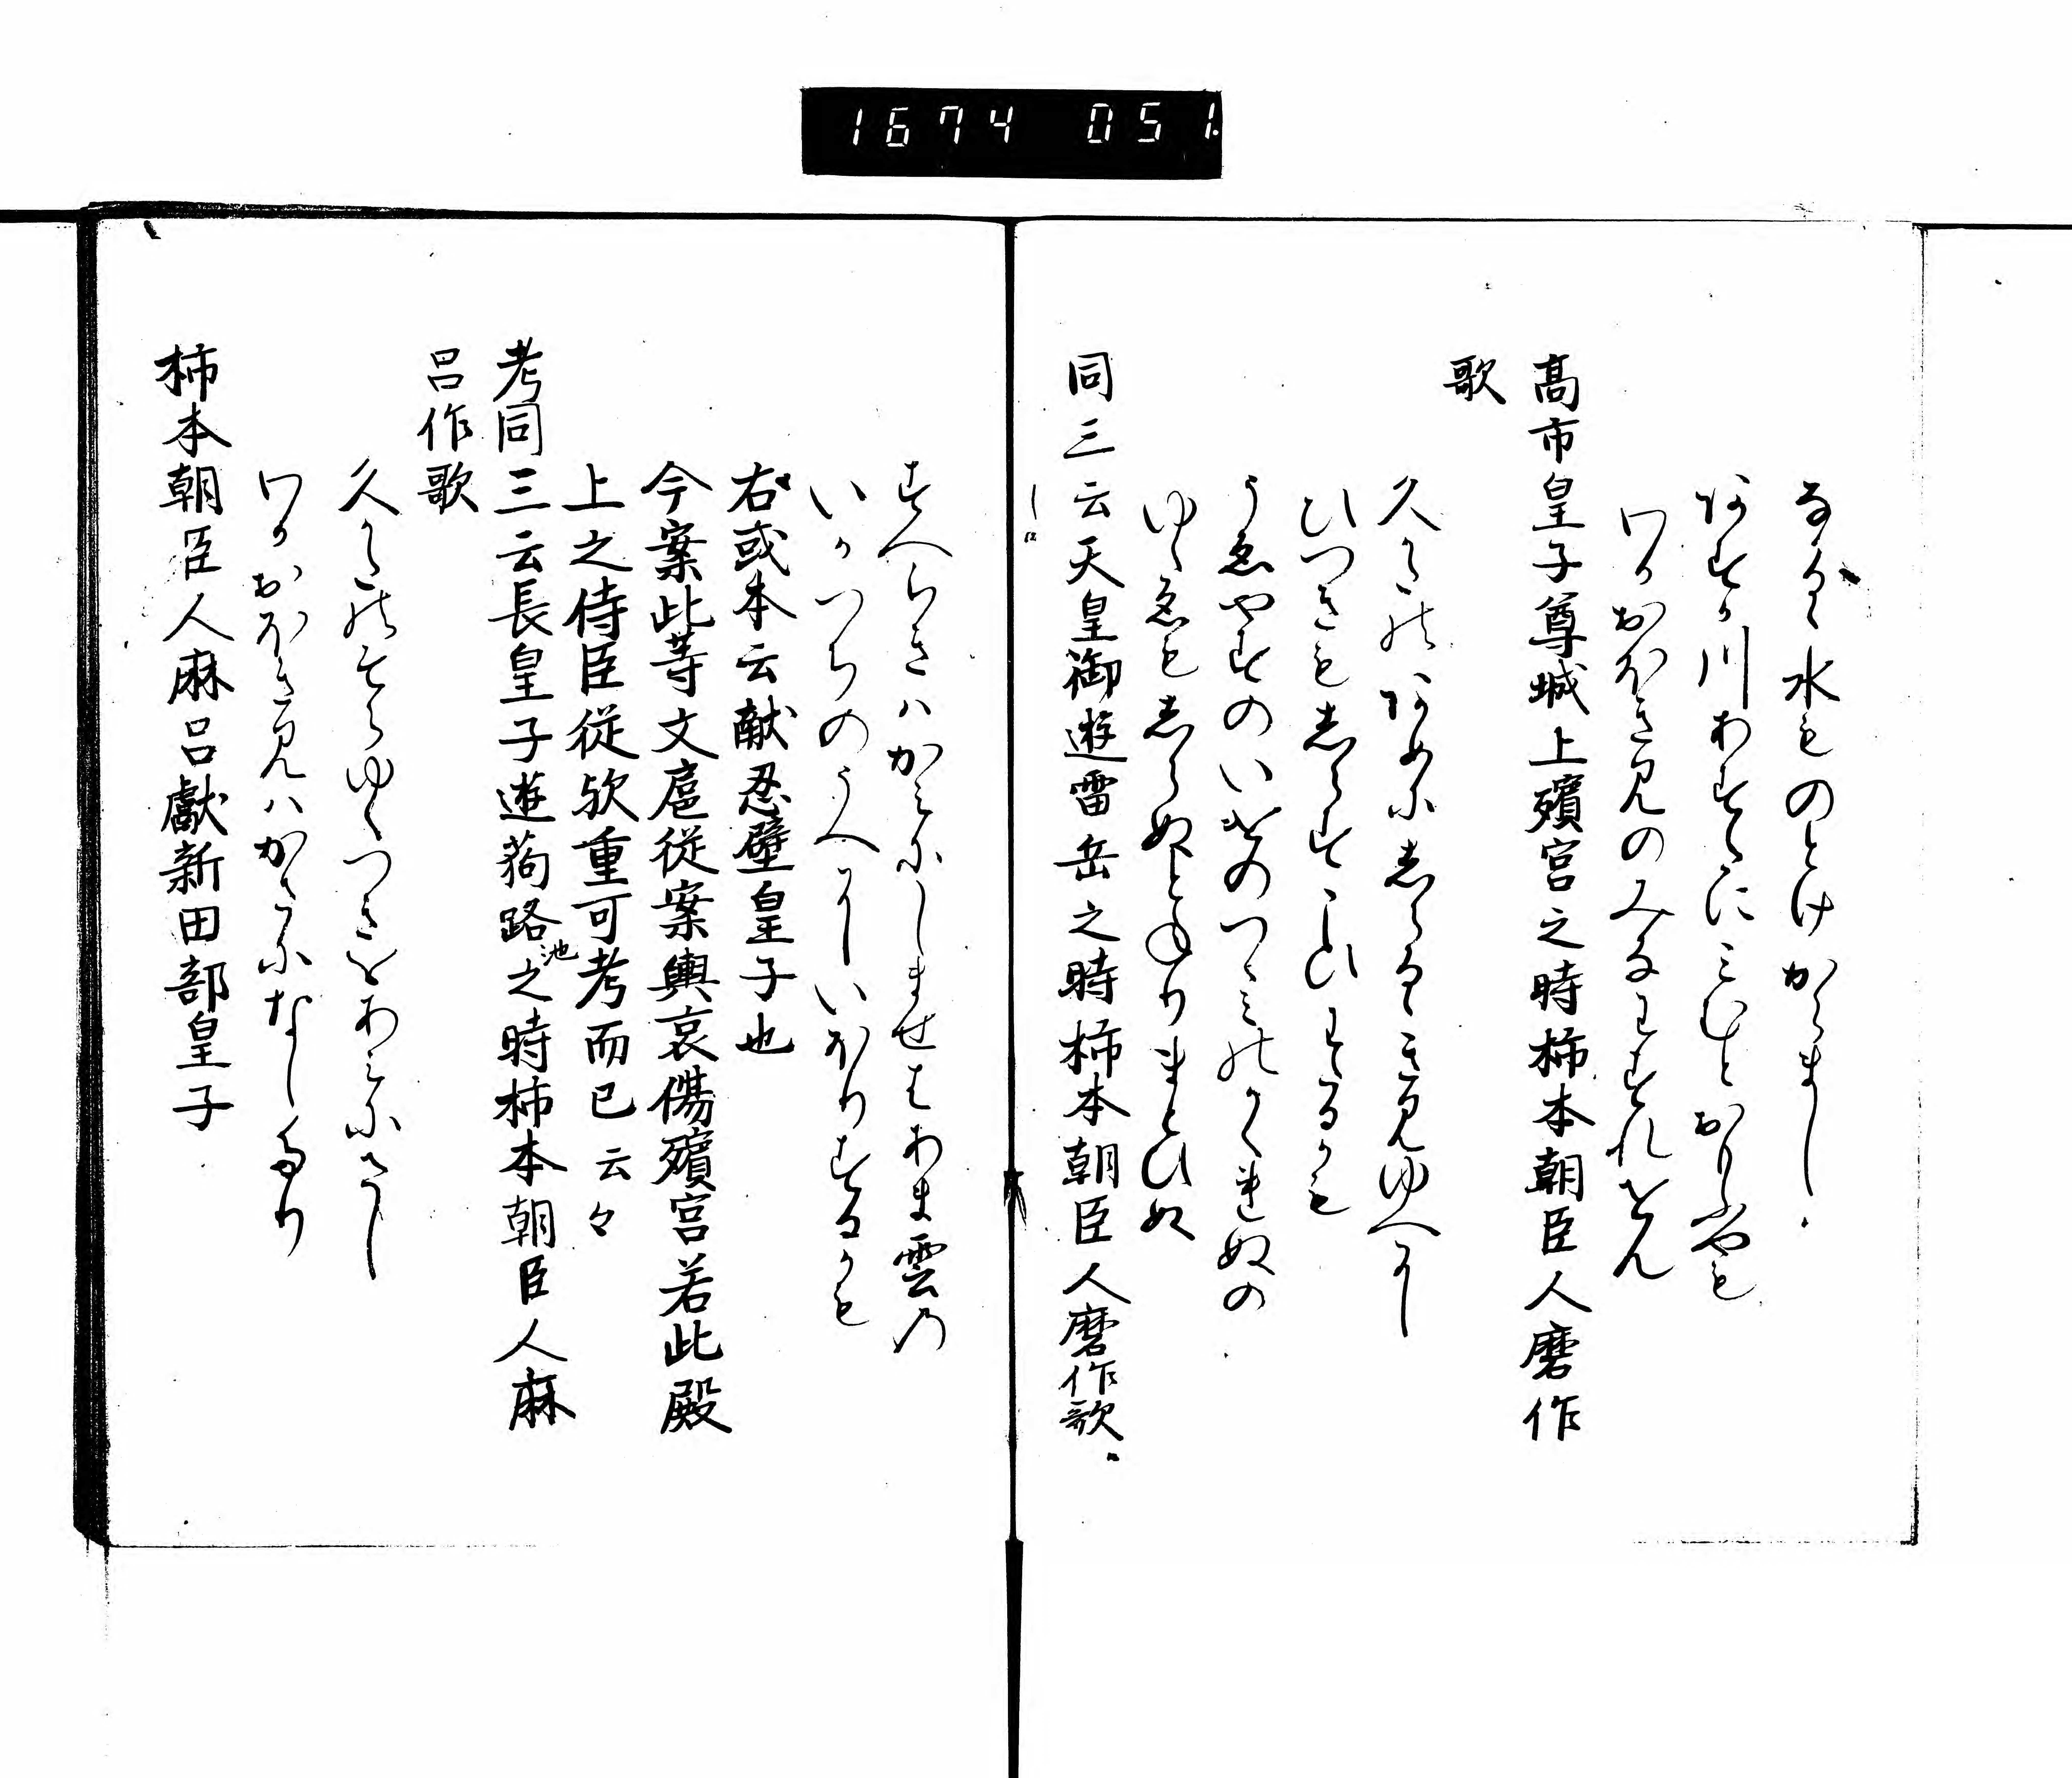 1674 051.
なかるゝ水ものとけからまし
阿すか川あすたにみむとおもふやも
わかおほきみのみなわすれせん
高市皇子尊城上殯宮之時柿本朝臣人磨作
歌
久かたの阿めに志らるゝきみゆへに
ひつきも志らすこひわたるかも
うゑやすのいけのつゝみのかくれぬの
ゆくゑも志らぬとねりまとひぬ
同三云天皇御遊雷岳之時柿本朝臣人磨作歌
すへらきはかみにしませはあま雲の
いかつちのうへにいほりするかも
右或本云献忍壁皇子也
今案此等文扈従案輿哀傷殯宮若此殿
上之侍臣従欤重可考而已云々
考同三云長皇子遊蒟路池之時柿本朝臣人麻
呂作歌
久かたのそらゆくつきをあみにさし
わかおほきみはかさになしたり
柿本朝臣人麻呂獻新田部皇子